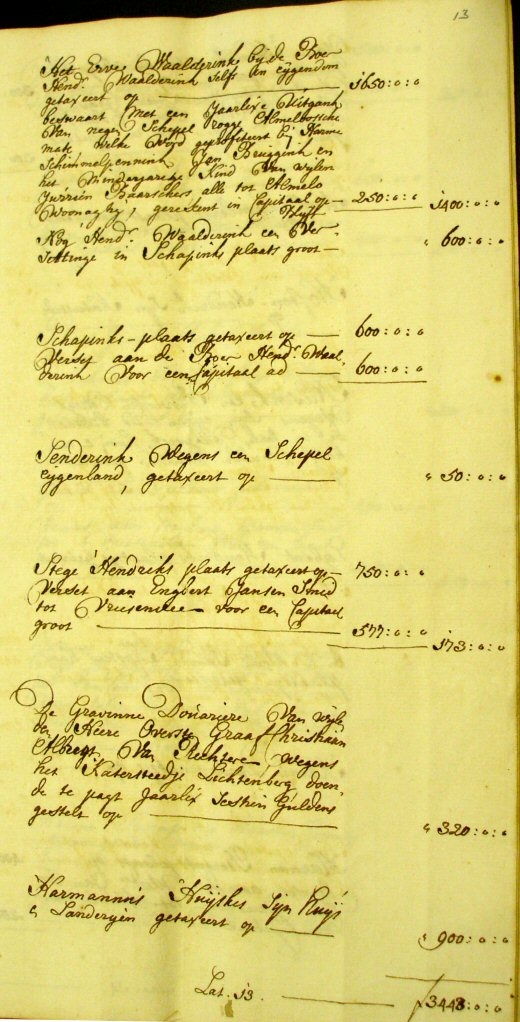 13
Het Erve Waalderink bij de Boer
Hend.r Waalderink selfs in eygendom
getaxeert op — 1650:0:0
beswaart met een Jaarlixe Uitgank
van negen Schepel rogge Almeloosche
mate welke word geprofiteert bij Harme
Schimmelpennink Jan Bruggink en
het Minderjarige Kind van wylen
Jurrien Baarschers alle tot Almelo
Woonagtig, gerekent in Capitaal op — 250:0:0 1400:0:0
Nog Hend.r Waalderink een Ver-
settinge in Schapinks plaats groot — " 600:0:0
Schapinks-plaats getaxeert op — 600:0:0
Verset aan de Boer Hend.r Waal
derink voor een Capitaal ad — 600:0:0
Senderink Wegens een Schepel
eygenland, getaxeert op — " 50:0:0
Stege Hendriks plaats getaxeert op — 750:0:0
Verset aan Engbert Jansen Smid
tot Vriesenvee voor een Capitael
groot — 577:0:0 173:0:0
De Gravinne Douariere van wyle
den Heere Overste Graaf Christiaen
Albregt van Rechtere, wegens
het Katersteedje Lichtenberg doen,
de te pagt Jaarlix Sestien Guldens
gestelt op — " 320:0:0
Harmannus Huyskes Syn Huys
& Landeryen getaxeert op — " 900:0:0
Lat. 13. — f 3443:0:0